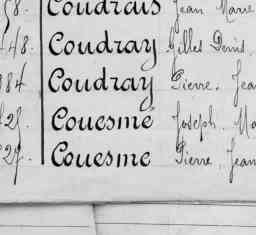 58. Coudrais Jean Marie
48. Coudray Gilles Denis.
384 Coudray Pierre. Jean
425. Couesme Joseph. Ma
227. Couesme Pierre. Jean